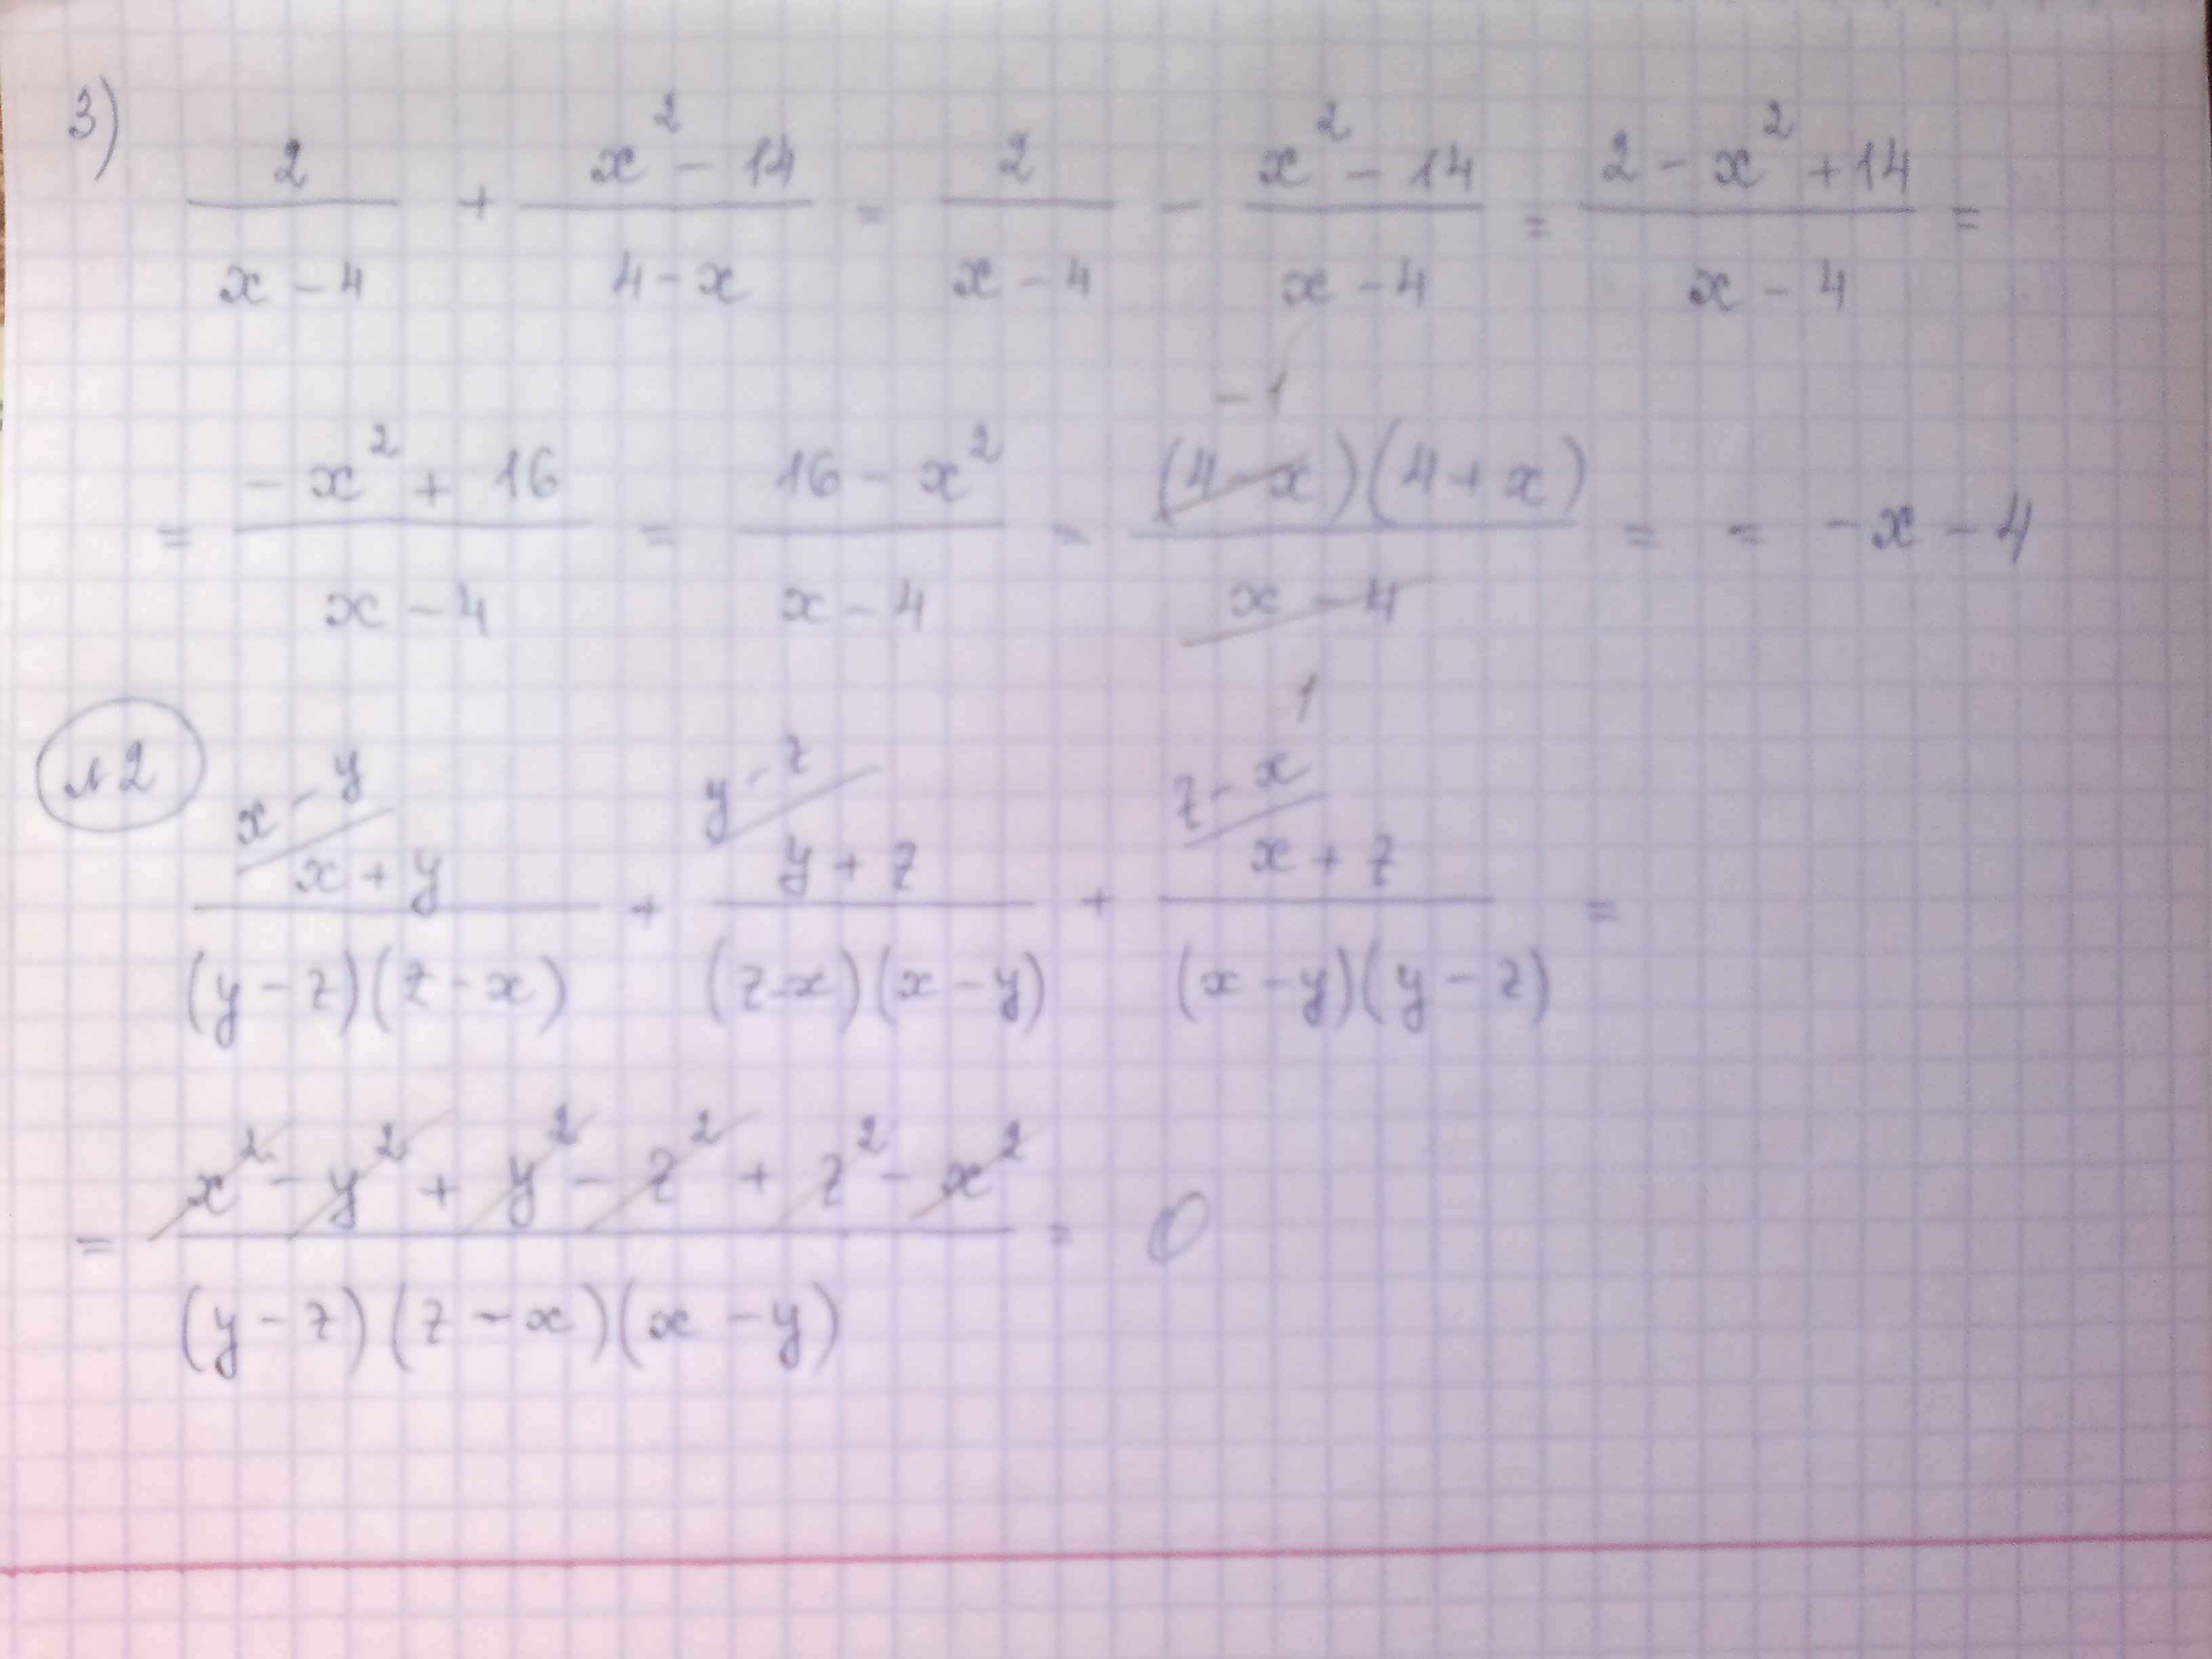 3) 2/(x-4) + (x²-14)/(4-x) = 2/(x-4) - (x²-14)/(x-4) = (2-x²+14)/(x-4) =
= (-x²+16)/(x-4) = (16-x²)/(x-4) = ((4-x)(4+x))/(x-4) = = -x-4
-1
1
№2
x-y y-z z-x
(x+y)/((y-z)(z-x)) + (y+z)/((z-x)(x-y)) + (x+z)/((x-y)(y-z)) =
= (x²-y²+y²-z²+z²-x²)/((y-z)(z-x)(x-y)) = 0